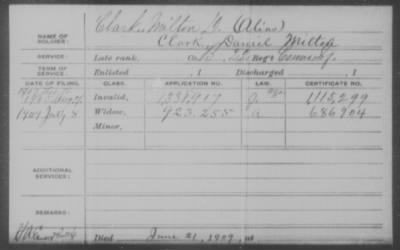 Clark, Milton D. (Alias)
NAME OF SOLDIER:
Clark, Daniel Milton
SERVICE: Late rank, Co. Reg't
TERM OF SERVICE: Enlisted , 1 Discharged , 1
DATE OF FILING. CLASS. APPLICATION NO. LAW. CERTIFICATE NO.
Invalid, 1115,299
1909 July 8 Widow, 923.255 686904
Minor,
ADDITIONAL SERVICES:
REMARKS:
Died June 21, 1909, at